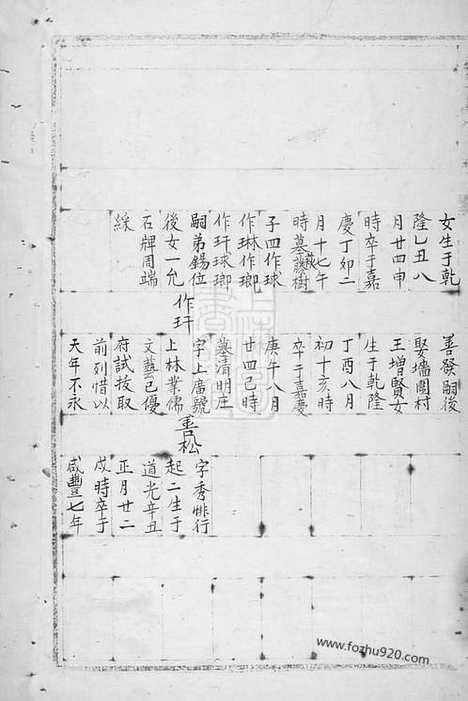 女生于乾
隆乙丑八
月廿四申
時卒于嘉
慶丁卯二
月十七午
時墓
子四作球
作琳作瑯
作玕球瑯
嗣弟錫位
後女一允
石牌周端
綵
作玕
善發嗣後
娶墻圍村
王增賢女
生于乾隆
丁酉八月
初十亥時
卒于嘉慶
庚午八月
廿四己時
墓清明庄
字上廣號
上林業儒
文藝已優
府試拔取
前列惜以
天年不永
善松
字秀
起二生于
道光辛丑
正月廿二
戌時卒于
咸豐七年
www.fozhu920.com